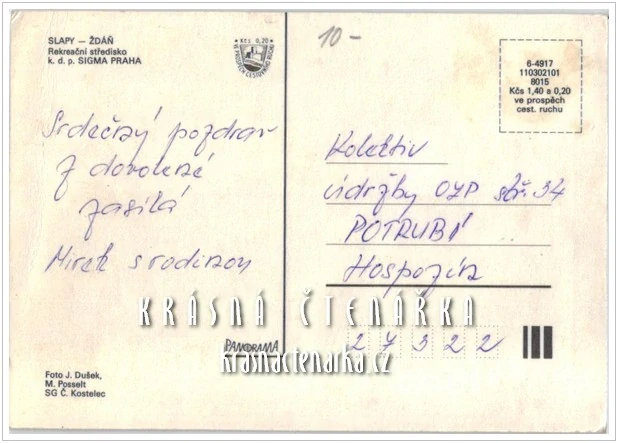 SLAPY – ŽDÁŇ
Rekreační středisko
k. d. p. SIGMA PRAHA
Kčs 0,20
VE PROSPĚCH CESTOVNÍHO RUCHU
10-
6-4917
110302101
8015
Kčs 1,40 a 0,20
ve prospěch
cest. ruchu
Srdečný pozdrav
z dovolené
zasílá
Mirek s rodinou
Kolektiv
údržby OZP stř. 34
POTRUBÍ
Hospozín
27322
KRÁSNÁ ČTENÁŘKA
PANORAMA
krasnactenarka.cz
Foto J. Dušek,
M. Posselt
SG Č. Kostelec